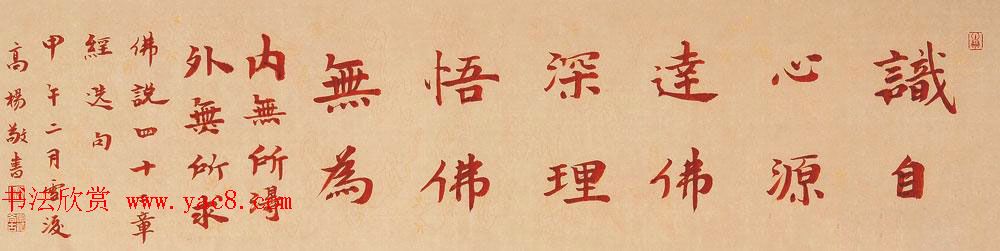 識自
心源
達佛
深理
悟佛
無為
内無所得
外無所求
佛說四十二章
經選句
甲午二月雪後
高楊敬書
书法欣赏 www.yac8.com